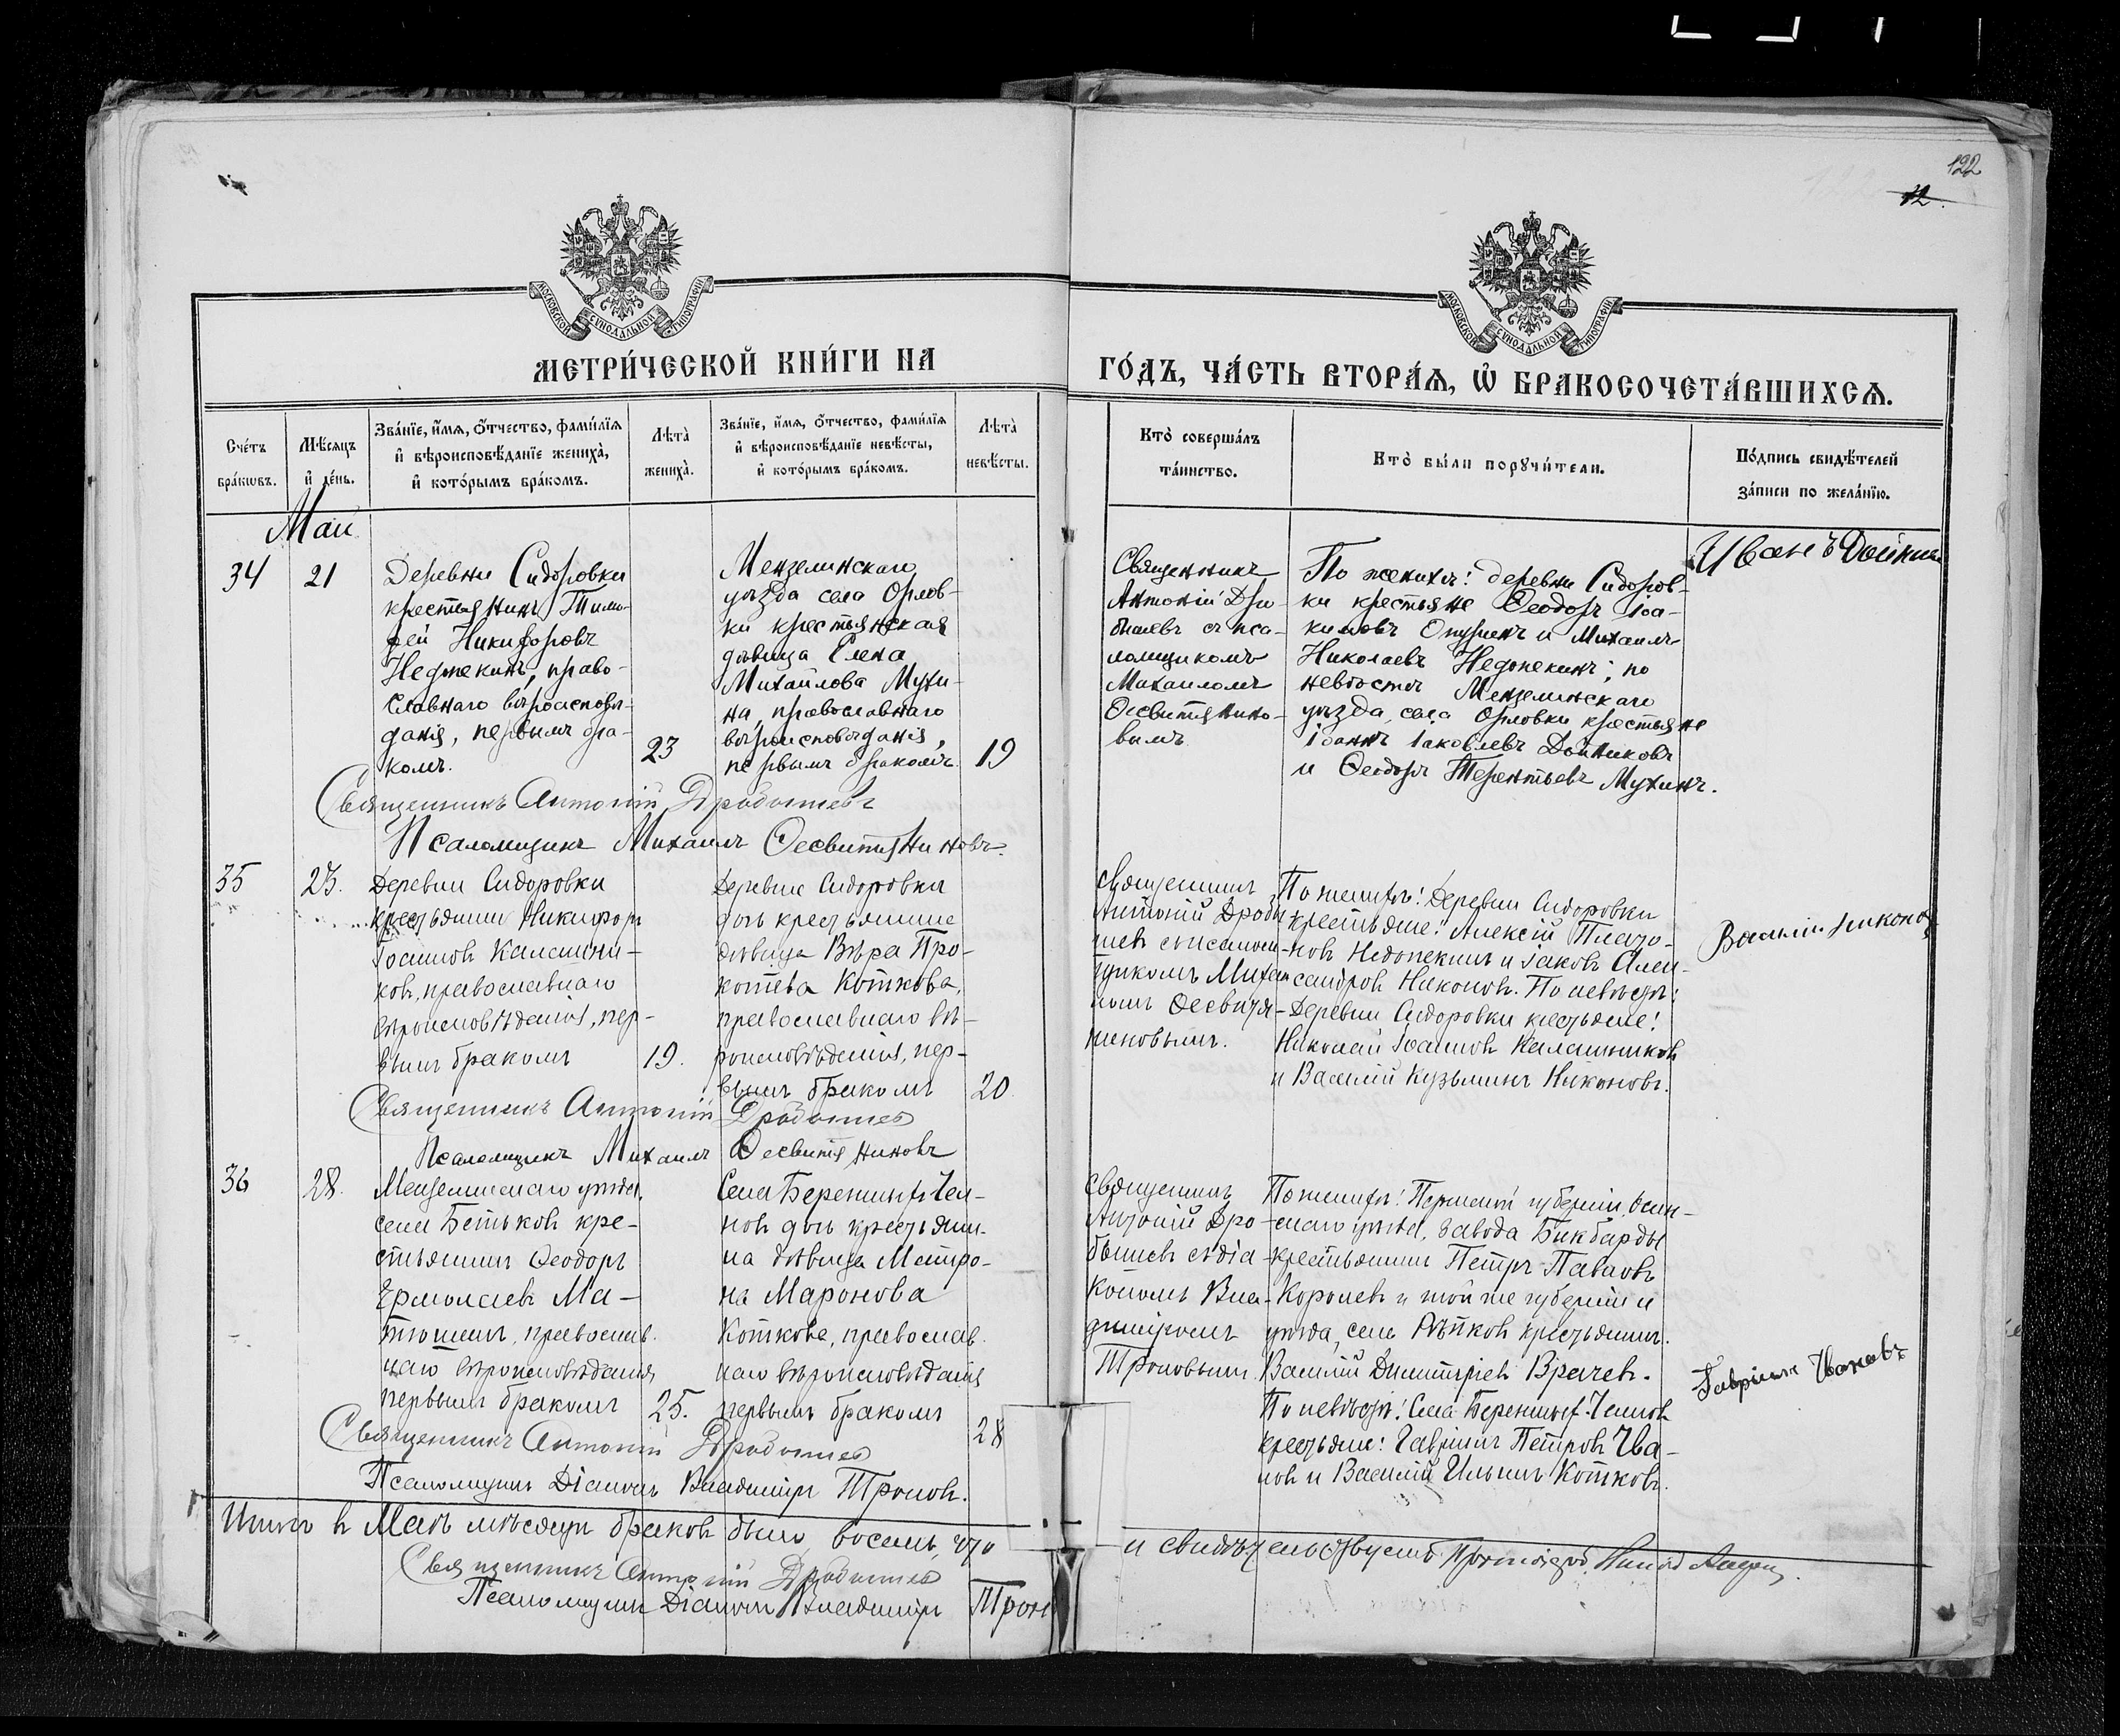 122
12.
МОСКОВСКОЙ СѴНОДАЛЬНОЙ ТИПОГРАФІИ
МОСКОВСКОЙ СѴНОДАЛЬНОЙ ТИПОГРАФІИ
МЕТРИ́ЧЕСКОЙ КНИ́ГИ НА
ГО́ДЪ, ЧА́СТЬ ВТОРА́Ѧ, Ѡ҆ БРАКОСОЧЕТА́ВШИХСѦ.
Сче́тъ бра́кѡвъ.
Мѣ́сѧцъ и҆ де́нь.
Зва́нїе, и҆́мѧ, ѻ҆́тчество, фами́лїѧ
и҆ вѣроисповѣ́данїе жениха̀,
и҆ кото́рымъ бра́комъ.
Лѣ́та̀ жениха̀.
Зва́нїе, и҆́мѧ, ѻ҆́тчество, фами́лїѧ
и҆ вѣроисповѣ́данїе невѣ́сты,
и҆ кото́рымъ бра́комъ.
Лѣ́та̀ невѣ́сты.
Кто̀ соверша́лъ
та́инство.
Кто̀ бы́ли порꙋчи́тели.
По́дпись свидѣ́телей
за́писи по жела́нїю.
Май
34
21
Деревни Сидоровки
крестьянинъ Тимо-
фей Никифоровъ
Недопекинъ, право-
славнаго вѣроисповѣ-
данія, первымъ бра-
комъ.
23
Мензелинскаго
уѣзда села Орлов-
ки крестьянская
дѣвица Елена
Михайлова Мухи-
на, православнаго
вѣроисповѣданія,
первымъ бракомъ.
19
Священникъ
Антоній Дро-
бышевъ съ пса-
ломщикомъ
Михаиломъ
Ѳесвитянино-
вымъ.
По женихѣ: деревни Сидоров-
ки крестьяне Ѳеодоръ Іоа-
кимовъ и Михаилъ
Николаевъ Недопекинъ; по
невѣстѣ Мензелинскаго
уѣзда, села Орловки крестьяне
Іоаннъ Іаковлевъ Дойниковъ
и Ѳеодоръ Терентьевъ Мухинъ.
Иванъ
Священникъ Антоній Дробышевъ
Псаломщикъ Михаилъ Ѳесвитяниновъ.
35
23.
Деревни Сидоровки
крестьянинъ Никифоръ
Іоанновъ Калашни-
ковъ, православнаго
вѣроисповѣданія, пер-
вымъ бракомъ
19.
Деревни Сидоровки
дочь крестьянина
дѣвица Вѣра Про-
копьева Коткова,
православнаго вѣ-
роисповѣданія, пер-
вымъ бракомъ
20
Священникъ
Антоній Дробы-
шевъ съ псалом-
щикомъ Михаи-
ломъ Ѳесвитя-
ниновымъ.
По женихѣ: Деревни Сидоровки
крестьяне: Алексій Плато-
новъ Недопекинъ и Іаковъ Алек-
сандровъ Никоновъ. По невѣстѣ:
Деревни Сидоровки крестьяне:
Николай Іоанновъ Калашниковъ
и Василій Кузьминъ Никоновъ.
Василій Никоновъ
Священникъ Антоній Дробышевъ
Псаломщикъ Михаилъ Ѳесвитяниновъ
36
28.
Мензелинскаго уѣзда,
села Бетьковъ кре-
стьянинъ Ѳеодоръ
Ермолаевъ Ма-
тюшинъ, православ-
наго вѣроисповѣданія
первымъ бракомъ
25.
Села Бережныхъ Чел-
новъ дочь крестьяни-
на дѣвица Матро-
на Маронова
Коткова, православ-
наго вѣроисповѣданія
первымъ бракомъ
28
Священникъ
Антоній Дро-
бышевъ съ діа-
кономъ Вла-
диміромъ
Троновымъ
По женихѣ: Пермской губерніи, Осин-
скаго уѣзда, завода Бикбарды
крестьянинъ Петръ Павловъ
Королевъ и той же губерніи и
уѣзда, села крестьянинъ
Василій Димитріевъ Врачевъ.
По невѣстѣ: Села Бережныхъ Челновъ
крестьяне: Гавріилъ Петровъ Ива-
новъ и Василій Ильинъ Котковъ.
Гавріилъ Ивановъ
Священникъ Антоній Дробышевъ
Псаломщикъ Діаконъ Владиміръ Троновъ.
Итого въ Маѣ мѣсяцѣ браковъ было восемь, что
и свидѣтельствуемъ
Священникъ Антоній Дробышевъ
Псаломщикъ Діаконъ Владиміръ Трон